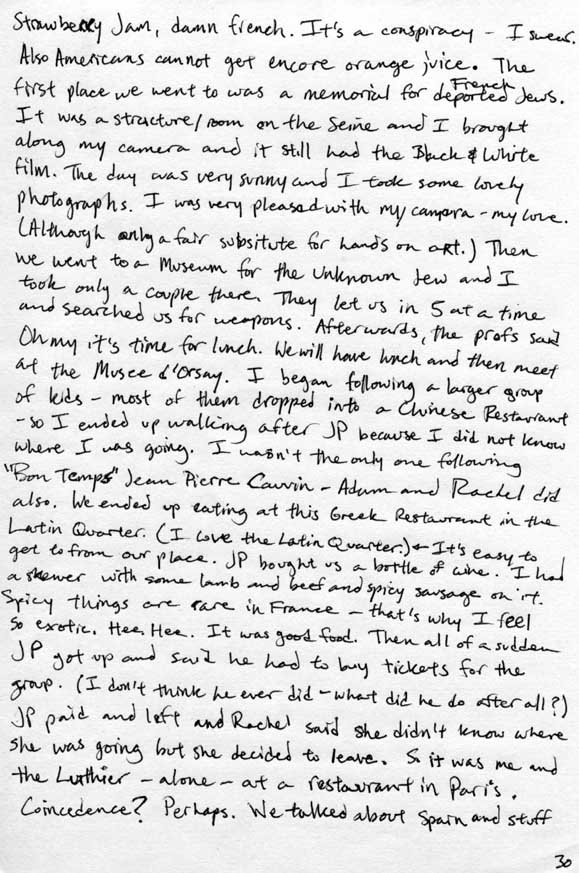 Strawberry Jam, damn french. It's a conspiracy - I swear.
Also Americans cannot get encore orange juice. The
first place we went to was a memorial for deported French Jews.
It was a structure/room on the Seine and I brought
along my camera and it still had the Black & White
film. The day was very sunny and I took some lovely
photographs. I was very pleased with my camera - my love.
(Although only a fair subsitute for hands on art.) Then
we went to a Museum for the Unknown Jew and I
took only a couple there. They let us in 5 at a time
and searched us for weapons. Afterwards, the profs said
Oh my it's time for lunch. We will have lunch and then meet
at the Musee d'Orsay. I began following a larger group
of kids - most of them dropped into a Chinese Restaurant
- so I ended up walking after JP because I did not know
where I was going. I wasn't the only one following
"Bon Temps" Jean Pierre Cauvin - Adam and Rachel did
also. We ended up eating at this Greek Restaurant in the
Latin Quarter. (I love the Latin Quarter.) & It's easy to
get to from our place. JP bought us a bottle of wine. I had
a skewer with some lamb and beef and spicy sausage on it.
Spicy things are rare in France - that's why I feel
so exotic. Hee, Hee. It was good food. Then all of a sudden
JP got up and said he had to buy tickets for the
group. (I don't think he ever did - what did he do after all?)
JP paid and left and Rachel said she didn't know where
she was going but she decided to leave. So it was me and
the Luthier - alone - at a restaurant in Paris.
Coincedence? Perhaps. We talked about Spain and stuff
30